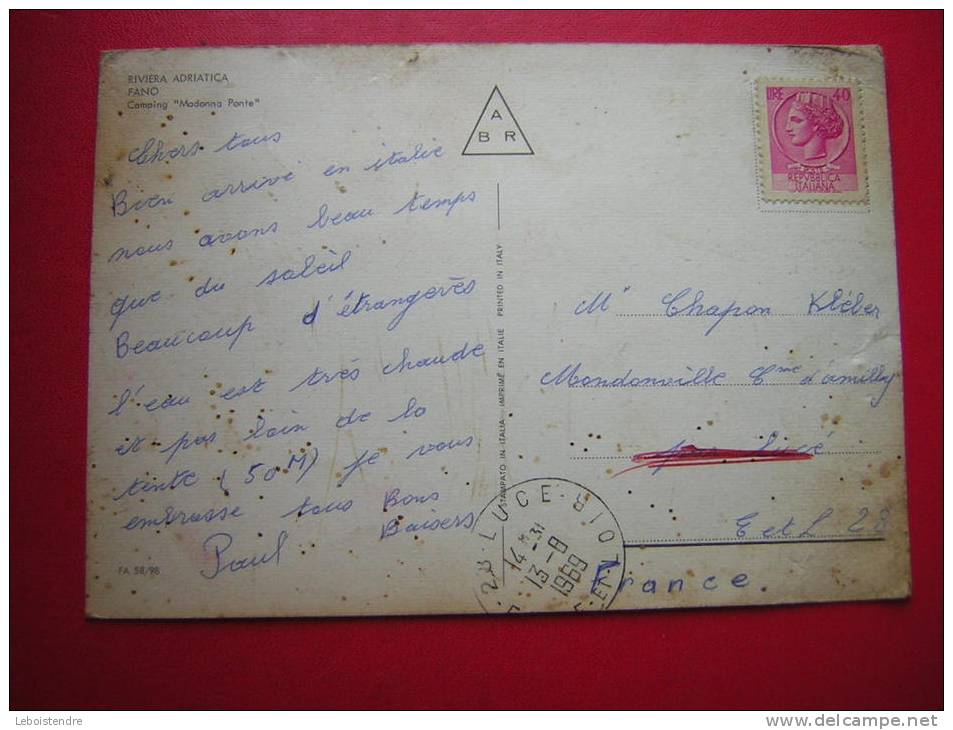 RIVIERA ADRIATICA
FANO
Camping "Madonna Ponte"
Chers tous
Bien arrivé en italie
nous avons beau temps
que du soleil
Beaucoup d'étrangerès
l'eau est très chaude
et pas loin de la
tente (50 M) je vous
embrasse tous Bons
Baisers
Paul
FA 58/98
A
B R
STAMPATO IN ITALIA IMPRIMÉ EN ITALIE PRINTED IN ITALY
LIRE 40
POSTE
REPVBBLICA
ITALIANA
Mr Chapon Kléber
Mondonville Cme d'amilly
par Lucé
E et L 28
France.
28 LUCE S10
14H-31
13-8
1969
ET-LO
Leboistendre
www.delcampe.net